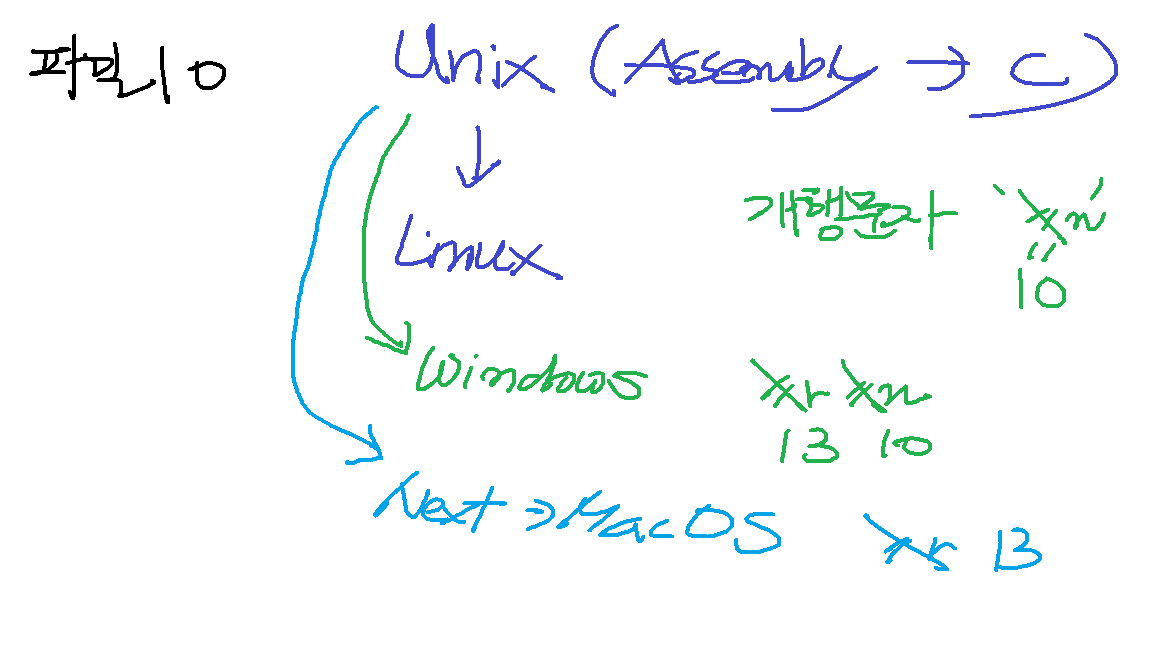 파일IO Unix (Assembly → C)
↓
개행문자 '\n'
Linux
10
Windows \r\n
13 10
Next → MacOS \r 13